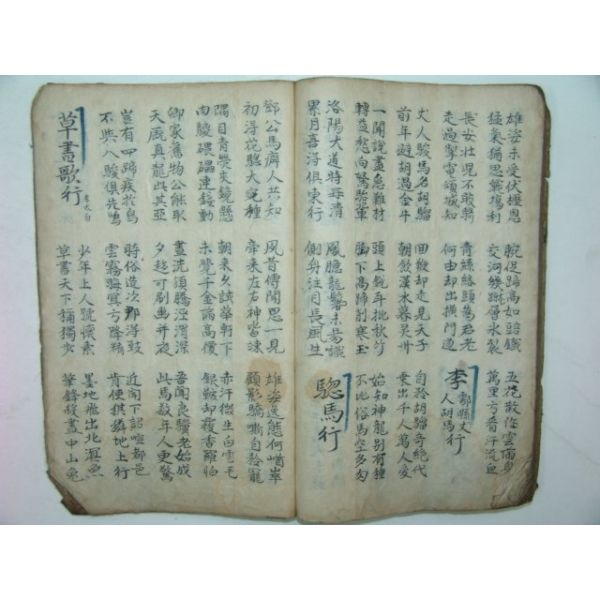 雄姿未受伏櫪恩
猛氣猶思戰場利
腕促蹄高如踣鐵
交河幾蹴層氷裂
五花散作雲滿身
萬里方看汗流血
長安壯兒不敢騎
走過掣電傾城知
青絲絡頭爲君老
何由却出橫門道
李鄠縣丈人胡馬行
丈人駿馬名胡騮
前年避胡過金牛
回鞭却走見天子
朝飮漢水暮靈州
自矜胡騮奇絶代
乘出千人萬人愛
一聞說盡急難材
轉益愁向駑駘輩
頭上銳耳批秋竹
脚下高蹄削寒玉
始知神龍別有種
不比俗馬空多肉
洛陽大道時再清
累月喜得俱東行
鳳臆龍鬐未易識
側身注目長風生
驄馬行
鄧公馬癖人共知
初得花驄大宛種
夙昔傳聞思一見
牽來左右神皆竦
雄姿逸態何崷崒
顧影驕嘶自矜寵
隅目靑熒夾鏡懸
肉騣碨礧連錢動
朝來久試華軒下
未覺千金滿高價
赤汗微生白雪毛
銀鞍却覆香羅帕
卿家舊物公能取
天廐眞龍此其亞
晝洗須騰涇渭深
夕趍可刷幽幷夜
吾聞良驥老始成
此馬數年人更驚
豈有四蹄疾於鳥
不與八駿俱先鳴
時俗造次那得致
雲霧晦冥方降精
近聞下詔喧都邑
肯使騏驎地上行
草書歌行 李太白
少年上人號懷素
草書天下稱獨步
墨池飛出北溟魚
筆鋒殺盡中山兔